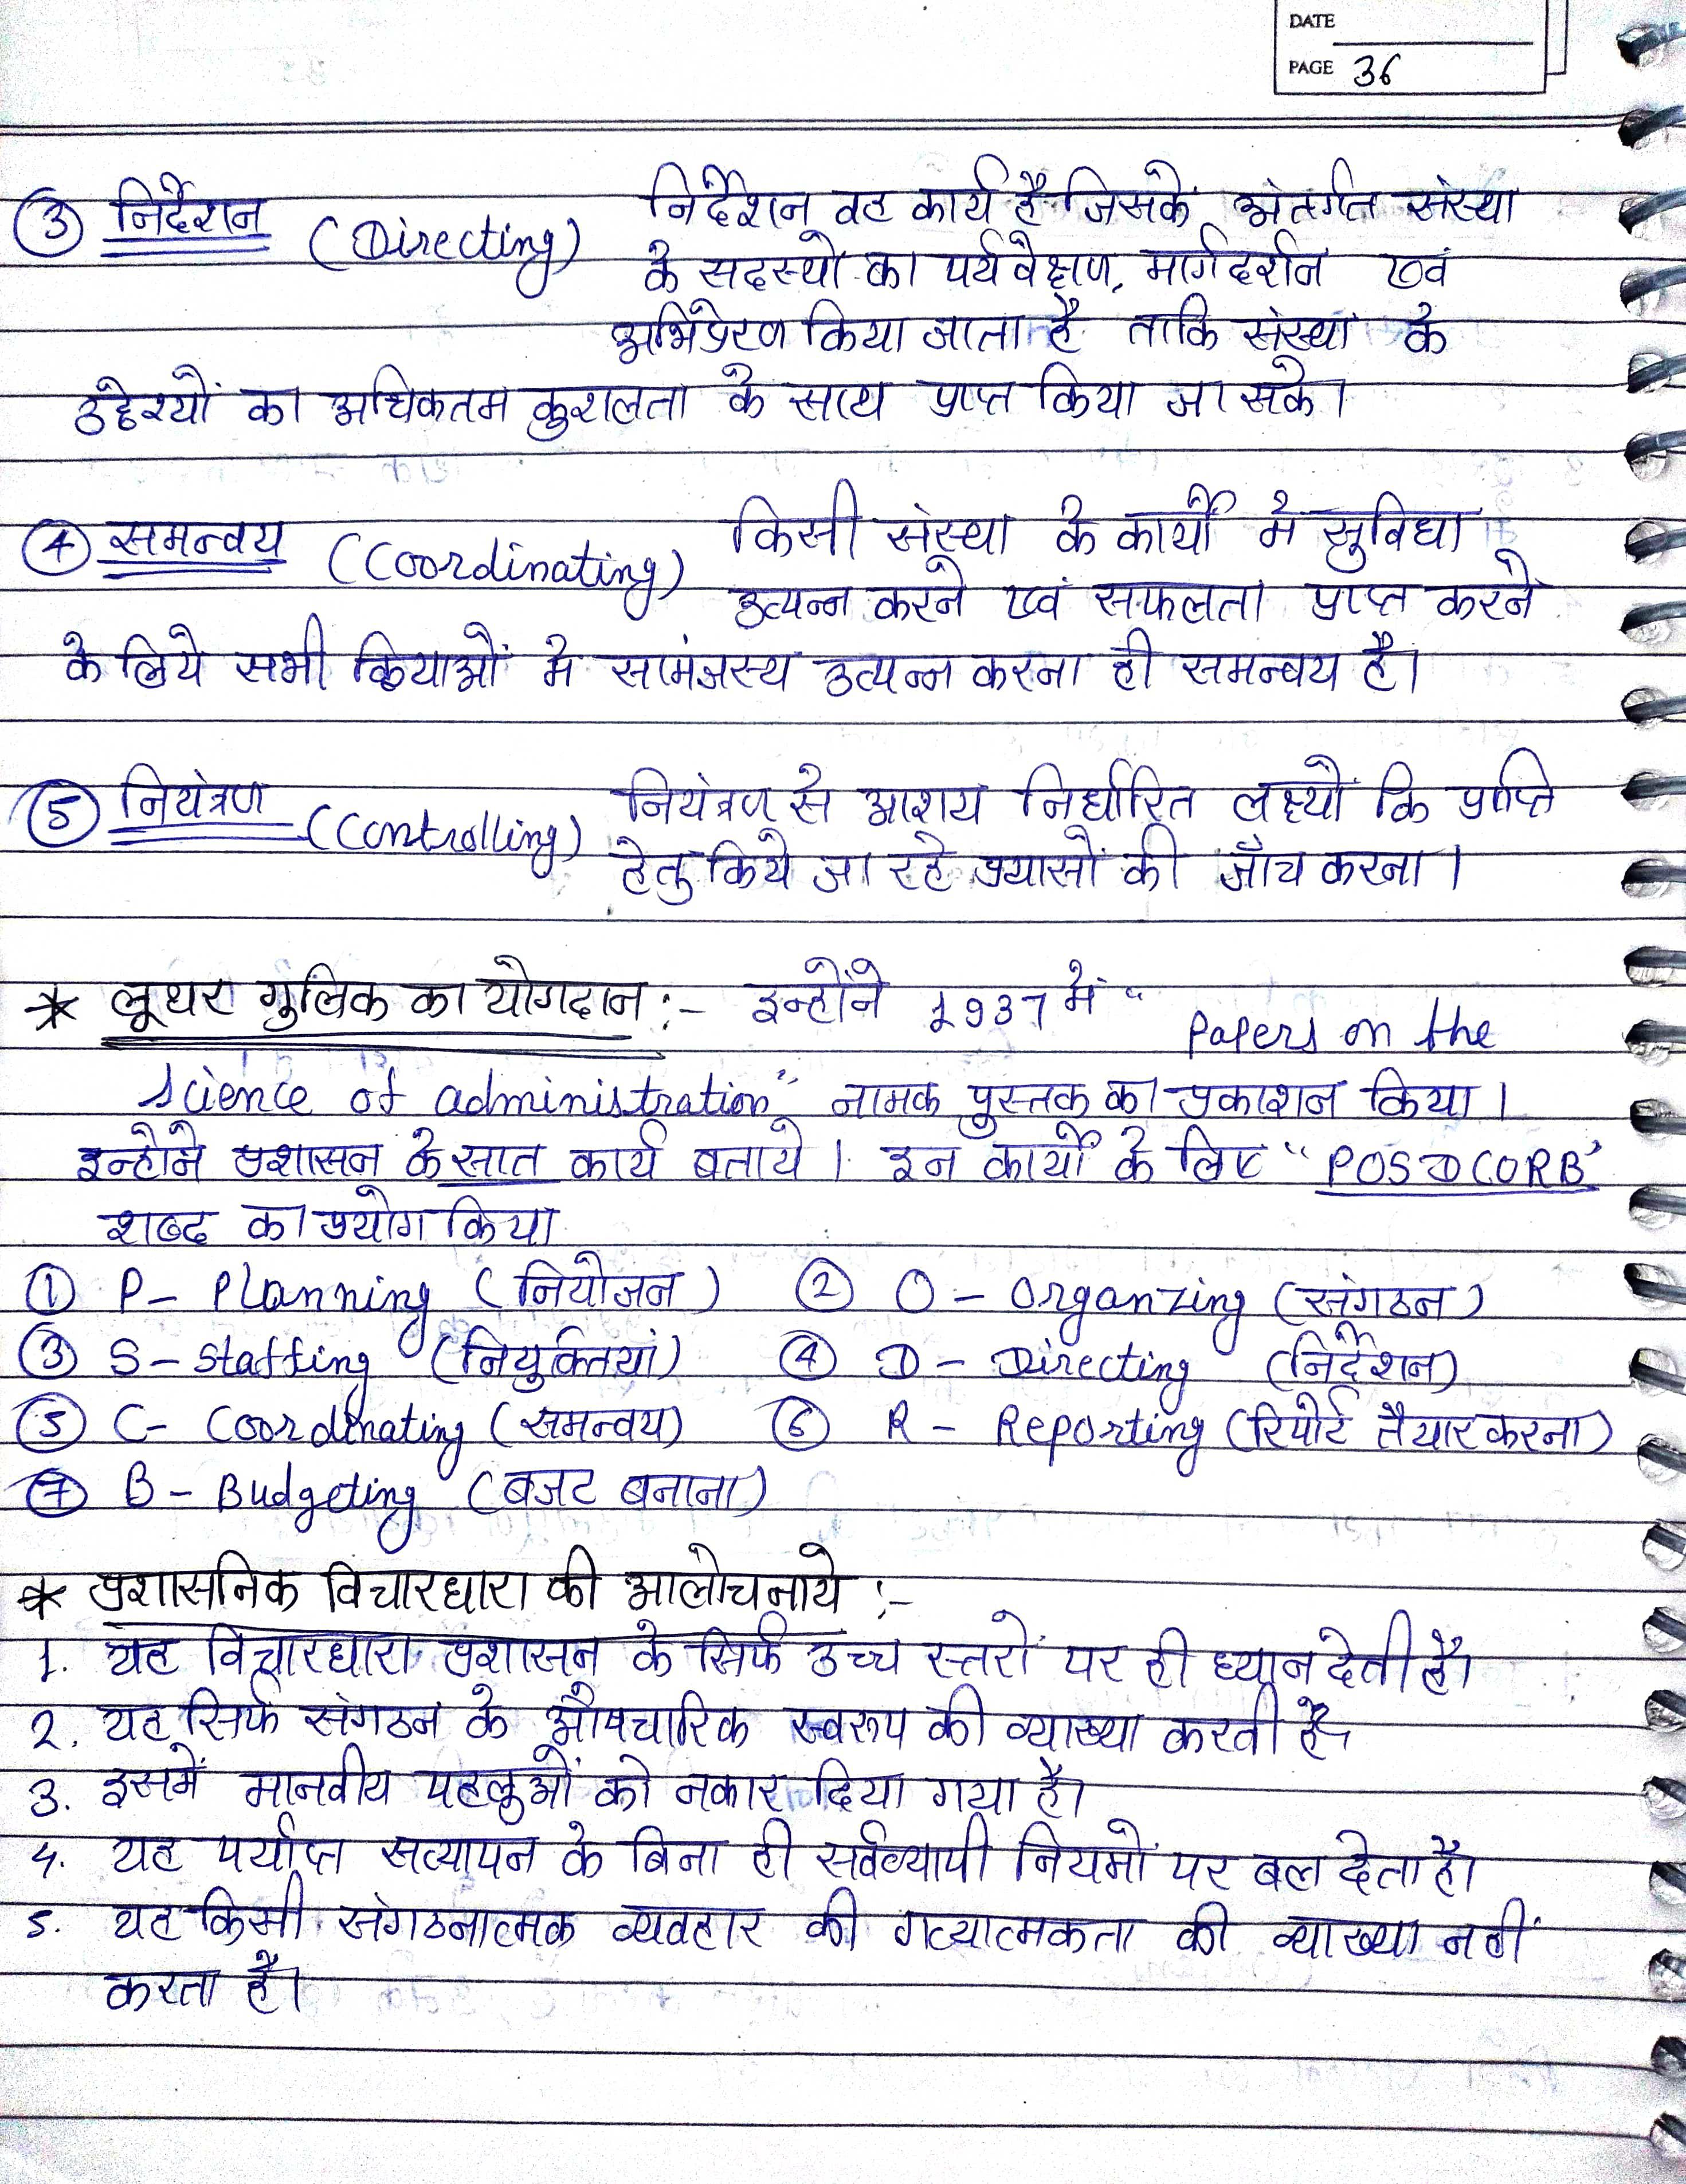 DATE
PAGE 36
③ निर्देशन (Directing) निर्देशन वह कार्य है जिसके अंतर्गत संस्था
के सदस्यो का पर्यवेक्षण, मार्गदर्शन एवं
अभिप्रेरण किया जाता है ताकि संस्था के
उद्देश्यों का अधिकतम कुशलता के साथ प्राप्त किया जा सके।
④ समन्वय (Coordinating) किसी संस्था के कार्यो मे सुविधा
उत्पन्न करने एवं सफलता प्राप्त करने
के लिये सभी क्रियाओं मे सामंजस्य उत्पन्न करना ही समन्वय है।
⑤ नियंत्रण (Controlling) नियंत्रण से आशय निर्धारित लक्ष्यों कि प्राप्ति
हेतु किये जा रहे प्रयासों की जाँच करना।
* लूथर गुलिक का योगदान :- इन्होंने 1937 में "Papers on the
Science of administration" नामक पुस्तक का प्रकाशन किया।
इन्होने प्रशासन के सात कार्य बताये। इन कार्यों के लिए "POSDCORB"
शब्द का प्रयोग किया
① P- Planning (नियोजन) ② O- Organzing (संगठन)
③ S- Staffing (नियुक्तियां) ④ D- Directing (निर्देशन)
⑤ C- Coordinating (समन्वय) ⑥ R- Reporting (रिपोर्ट तैयार करना)
⑦ B- Budgeting (बजट बनाना)
* प्रशासनिक विचारधारा की आलोचनाये :-
1. यह विचारधारा प्रशासन के सिर्फ उच्च स्तरों पर ही ध्यान देती है।
2. यह सिर्फ संगठन के औपचारिक स्वरूप की व्याख्या करती है
3. इसमें मानवीय पहलुओं को नकार दिया गया है।
4. यह पर्याप्त सत्यापन के बिना ही सर्वव्यापी नियमों पर बल देता है।
5. यह किसी संगठनात्मक व्यवहार की गत्यात्मकता की व्याख्या नहीं
करता है।